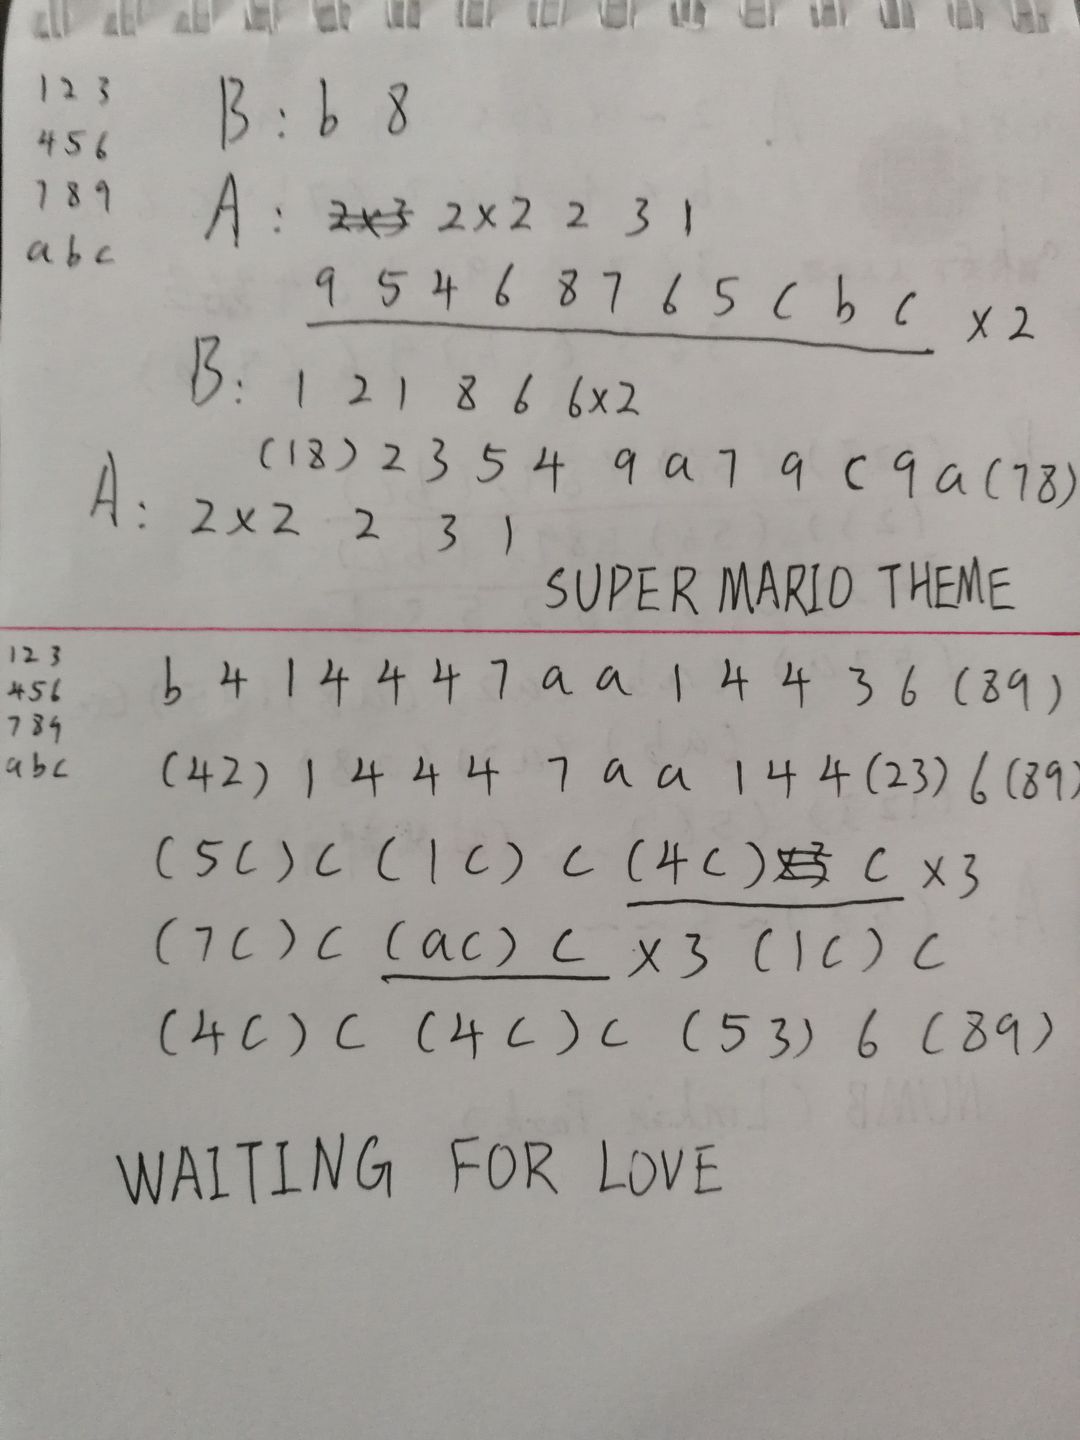 1 2 3
4 5 6
7 8 9
a b c
B: b 8
A: 2x3 2x2 2 3 1
9 5 4 6 8 7 6 5 c b c x2
B: 1 2 1 8 6 6x2
(18) 2 3 5 4 9 a 7 9 c 9 a (78)
A: 2x2 2 3 1
SUPER MARIO THEME
1 2 3
4 5 6
7 8 9
a b c
b 4 1 4 4 4 7 a a 1 4 4 3 6 (89)
(42) 1 4 4 4 7 a a 1 4 4 (23) 6 (89)
(5c) c (1c) c (4c) c x3
(7c) c (ac) c x3 (1c) c
(4c) c (4c) c (53) 6 (89)
WAITING FOR LOVE